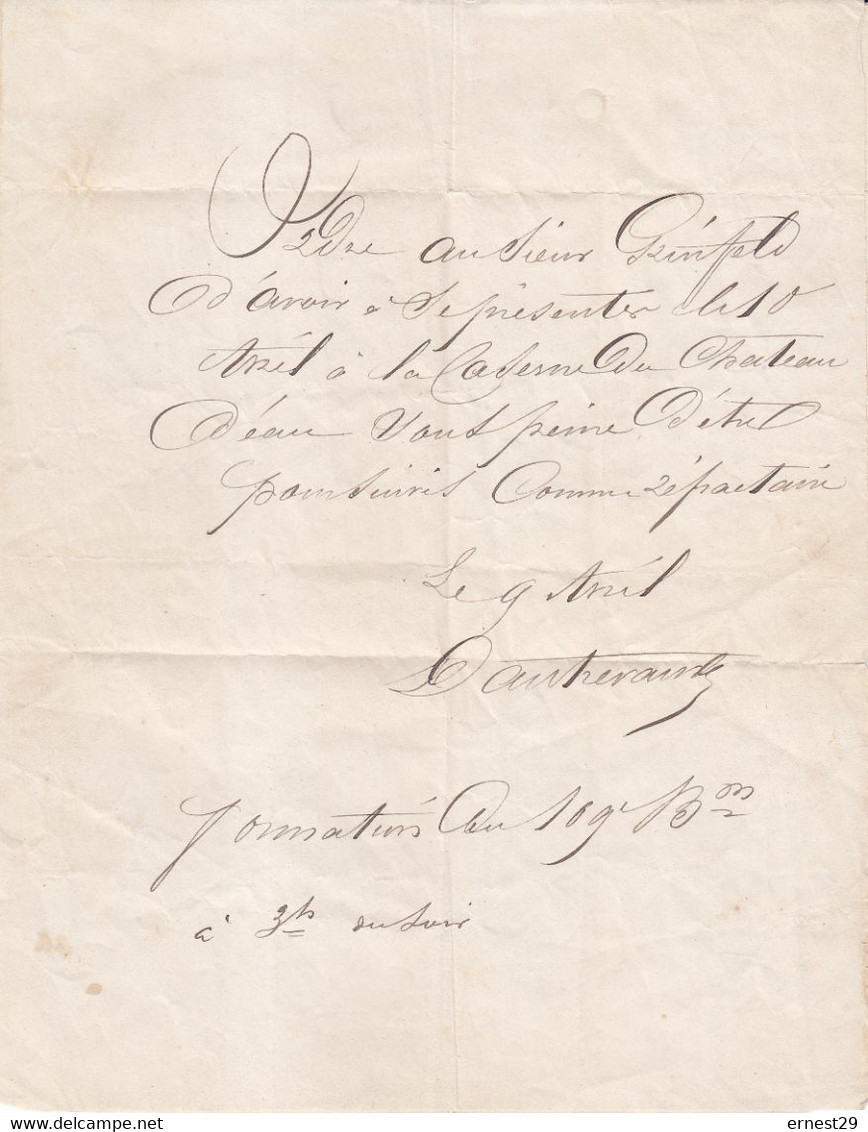 Ordre au Sieur Grinfeld
D'avoir à Se présenter le 10
Avril à la Caserne Du Chateau
D'eau Sous peine D'être
poursuivis Comme réfractaire
Le 9 Avril
formation Du 109e B^on
à 3h du Soir
delcampe.net
ernest29